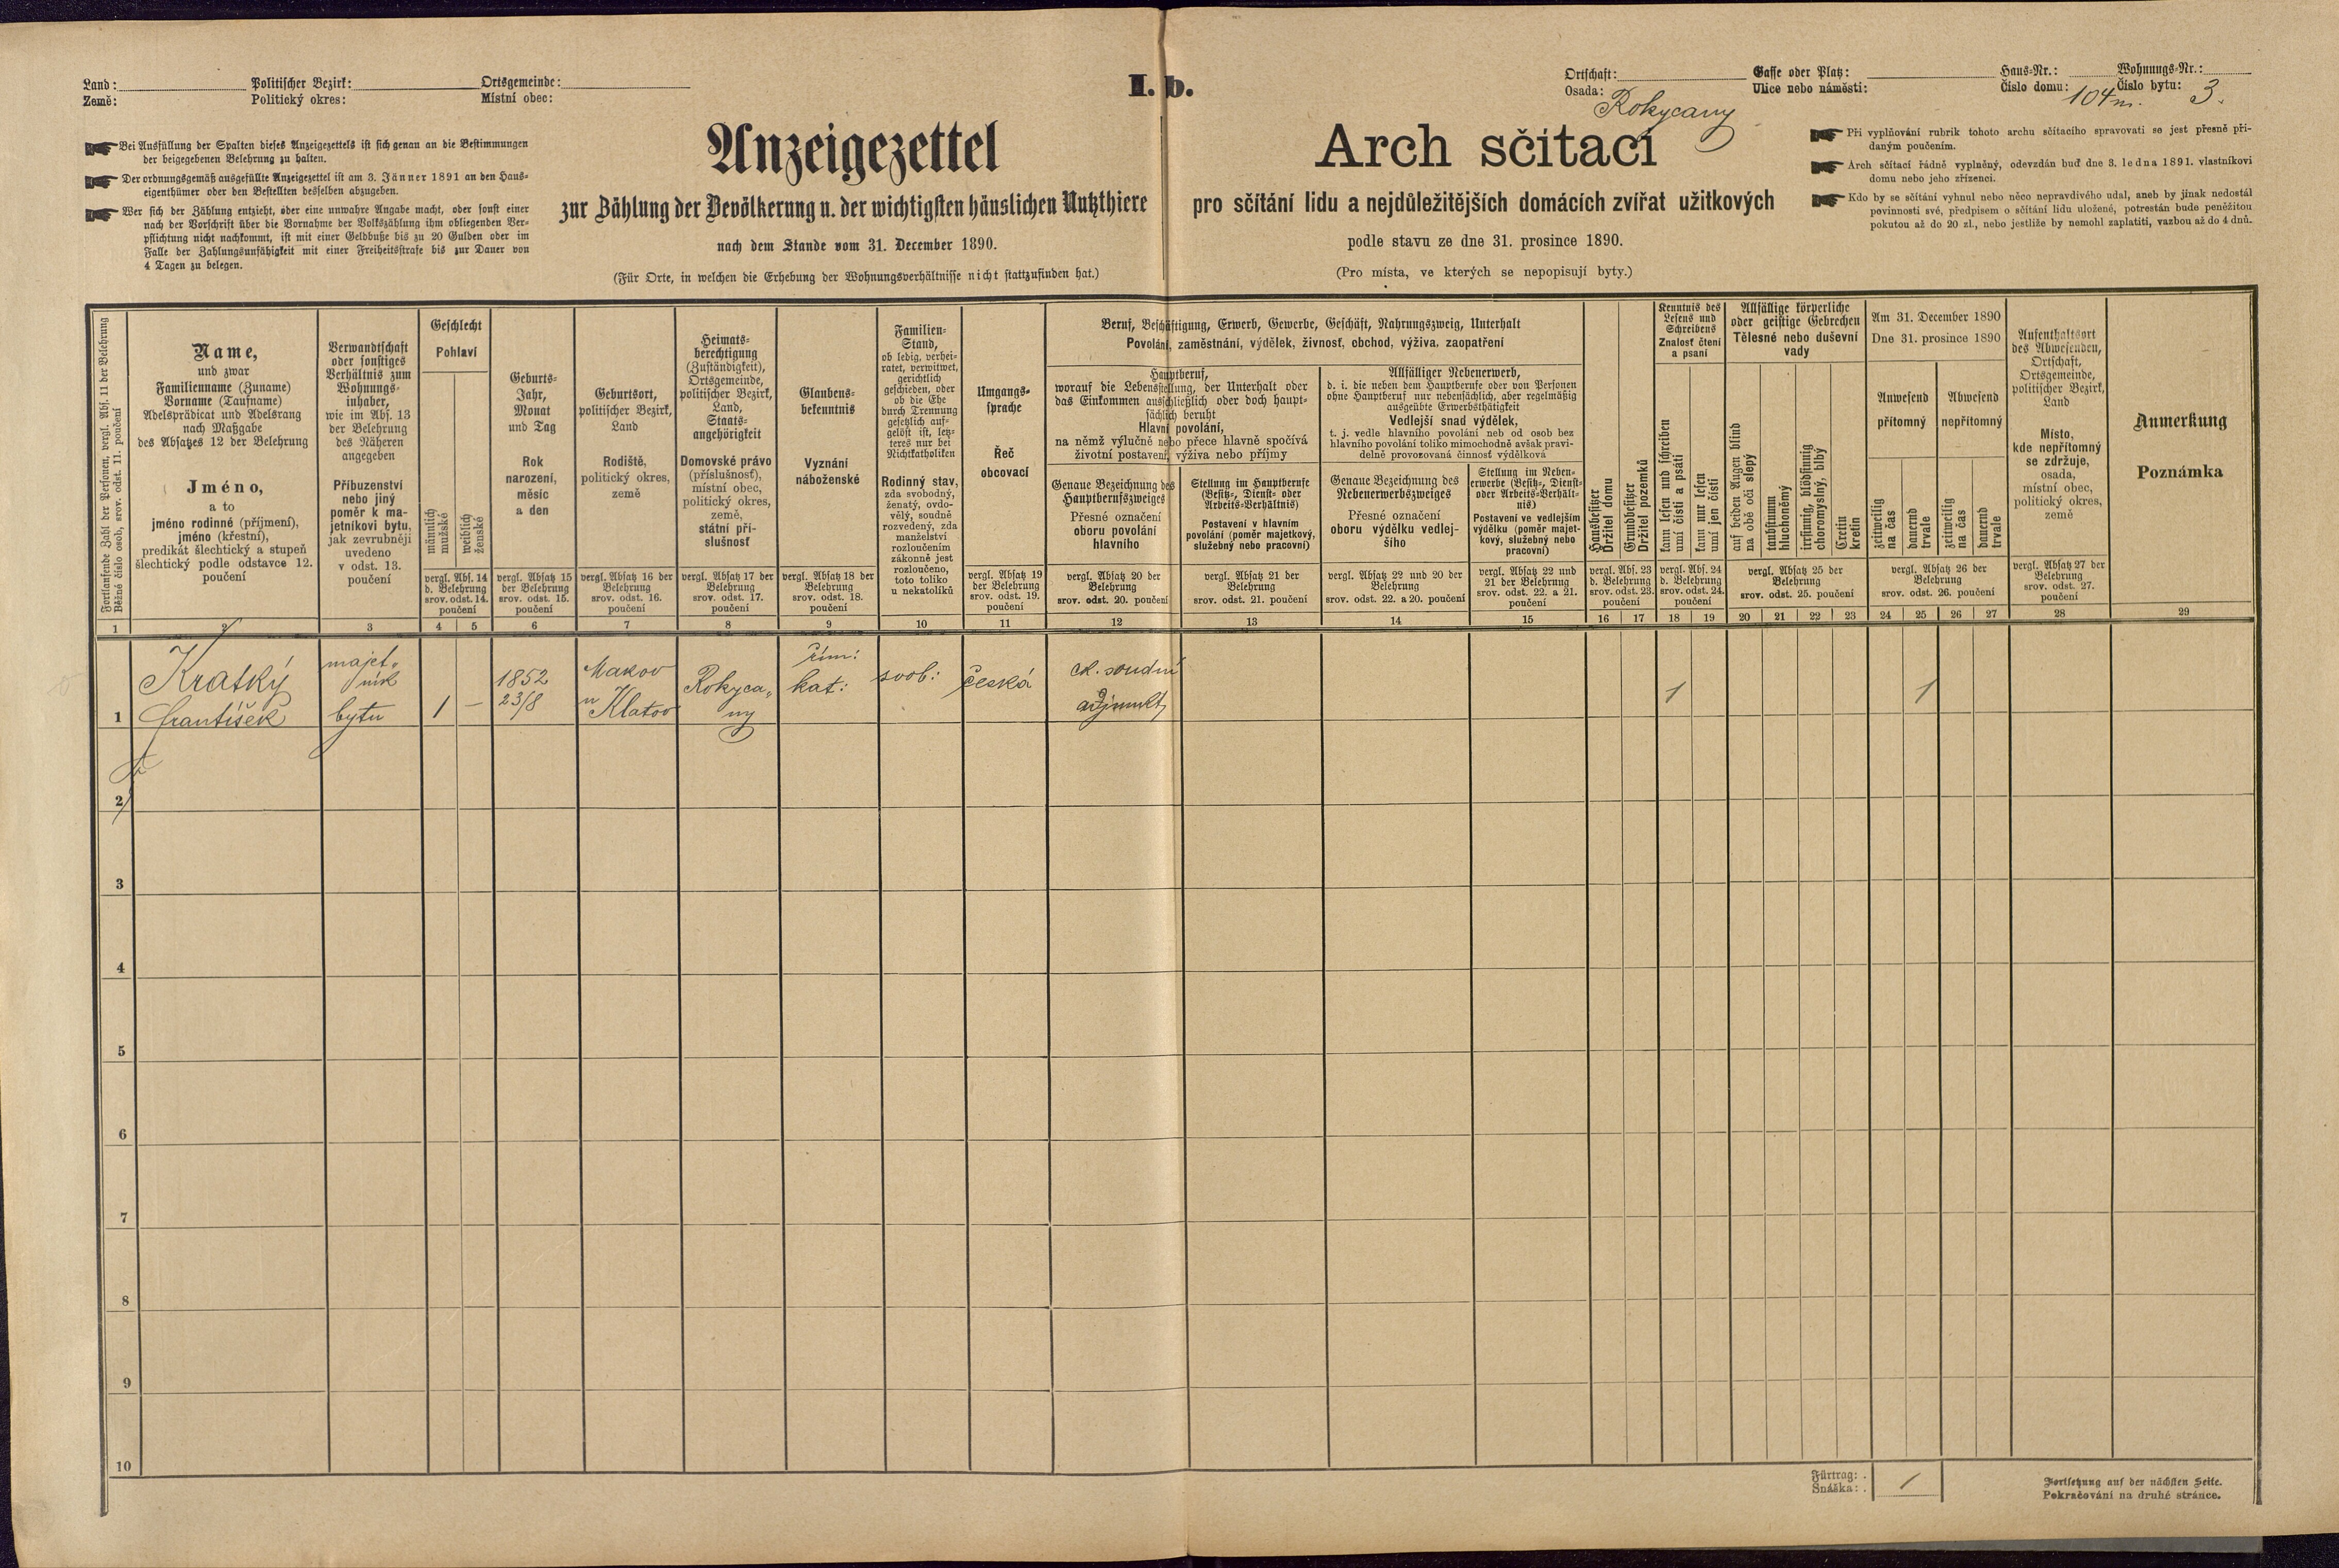 I. b.
Land:
Země:
Politischer Bezirk:
Politický okres:
Ortsgemeinde:
Místní obec:
Ortschaft:
Osada: Rokycany
Gasse oder Platz:
Ulice nebo náměstí:
Haus-Nr.:
Číslo domu: 104 m.
Wohnungs-Nr.:
Číslo bytu: 3.
Bei Ausfüllung der Spalten dieses Anzeigezettels ist sich genau an die Bestimmungen
der beigegebenen Belehrung zu halten.
Der ordnungsgemäß ausgefüllte Anzeigezettel ist am 3. Jänner 1891 an den Haus-
eigenthümer oder den Bestellten desselben abzugeben.
Wer sich der Zählung entzieht, oder eine unwahre Angabe macht, oder sonst einer
nach der Vorschrift über die Vornahme der Volkszählung ihm obliegenden Ver-
pflichtung nicht nachkommt, ist mit einer Geldbuße bis zu 20 Gulden oder im
Falle der Zahlungsunfähigkeit mit einer Freiheitsstrafe bis zur Dauer von
4 Tagen zu belegen.
Anzeigezettel
zur Zählung der Bevölkerung u. der wichtigsten häuslichen Nutzthiere
nach dem Stande vom 31. December 1890.
(Für Orte, in welchen die Erhebung der Wohnungsverhältnisse nicht stattzufinden hat.)
Arch sčítací
pro sčítání lidu a nejdůležitějších domácích zvířat užitkových
podle stavu ze dne 31. prosince 1890.
(Pro místa, ve kterých se nepopisují byty.)
Při vyplňování rubrik tohoto archu sčítacího spravovati se jest přesně při-
daným poučením.
Arch sčítací řádně vyplněný, odevzdán buď dne 3. ledna 1891. vlastníkovi
domu nebo jeho zřízenci.
Kdo by se sčítání vyhnul nebo něco nepravdivého udal, aneb by jinak nedostál
povinnosti své, předpisem o sčítání lidu uložené, potrestán bude peněžitou
pokutou až do 20 zl., nebo jestliže by nemohl zaplatiti, vazbou až do 4 dnů.
Fortlaufende Zahl der Personen, vergl. Abs. 11 der Belehrung
Běžné číslo osob, srov. odst. 11. poučení
Name,
und zwar
Familienname (Zuname)
Vorname (Taufname)
Adelsprädicat und Adelsrang
nach Maßgabe
des Absatzes 12 der Belehrung
Jméno,
a to
jméno rodinné (příjmení),
jméno (křestní),
predikát šlechtický a stupeň
šlechtický podle odstavce 12.
poučení
Verwandtschaft
oder sonstiges
Verhältnis zum
Wohnungs-
inhaber,
wie im Abs. 13
der Belehrung
des Näheren
angegeben
Příbuzenství
nebo jiný
poměr k ma-
jetníkovi bytu,
jak zevrubněji
uvedeno
v odst. 13.
poučení
Geschlecht
Pohlaví
männlich
mužské
weiblich
ženské
vergl. Abs. 14
d. Belehrung
srov. odst. 14.
poučení
Geburts-
Jahr,
Monat
und Tag
Rok
narození,
měsíc
a den
vergl. Absatz 15
der Belehrung
srov. odst. 15.
poučení
Geburtsort,
politischer Bezirk,
Land
Rodiště,
politický okres,
země
vergl. Absatz 16 der
Belehrung
srov. odst. 16.
poučení
Heimats-
berechtigung
(Zuständigkeit),
Ortsgemeinde,
politischer Bezirk,
Land,
Staats-
angehörigkeit
Domovské právo
(příslušnosť),
místní obec,
politický okres,
země,
státní pří-
slušnosť
vergl. Absatz 17 der
Belehrung
srov. odst. 17.
poučení
Glaubens-
bekenntnis
Vyznání
náboženské
vergl. Absatz 18 der
Belehrung
srov. odst. 18.
poučení
Familien-
Stand,
ob ledig, verhei-
ratet, verwitwet,
gerichtlich
geschieden, oder
ob die Ehe
durch Trennung
gesetzlich auf-
gelöst ist, letz-
teres nur bei
Nichtkatholiken
Rodinný stav,
zda svobodný,
ženatý, ovdo-
vělý, soudně
rozvedený, zda
manželství
rozloučením
zákonně jest
rozloučeno,
toto toliko
u nekatolíků
Umgangs-
sprache
Řeč
obcovací
vergl. Absatz 19
der Belehrung
srov. odst. 19.
poučení
Beruf, Beschäftigung, Erwerb, Gewerbe, Geschäft, Nahrungszweig, Unterhalt
Povolání, zaměstnání, výdělek, živnosť, obchod, výživa, zaopatření
Hauptberuf,
worauf die Lebensstellung, der Unterhalt oder
das Einkommen ausschließlich oder doch haupt-
sächlich beruht
Hlavní povolání,
na němž výlučně nebo přece hlavně spočívá
životní postavení, výživa nebo příjmy
Genaue Bezeichnung des
Hauptberufszweiges
Přesné označení
oboru povolání
hlavního
vergl. Absatz 20 der
Belehrung
srov. odst. 20. poučení
Stellung im Hauptberufe
(Besitz-, Dienst- oder
Arbeits-Verhältnis)
Postavení v hlavním
povolání (poměr majetkový,
služebný nebo pracovní)
vergl. Absatz 21 der
Belehrung
srov. odst. 21. poučení
Allfälliger Nebenerwerb,
d. i. die neben dem Hauptberufe oder von Personen
ohne Hauptberuf nur nebensächlich, aber regelmäßig
ausgeübte Erwerbsthätigkeit
Vedlejší snad výdělek,
t. j. vedle hlavního povolání neb od osob bez
hlavního povolání toliko mimochodně avšak pravi-
delně provozovaná činnosť výdělková
Genaue Bezeichnung des
Nebenerwerbszweiges
Přesné označení
oboru výdělku vedlej-
šího
vergl. Absatz 22 und 20 der
Belehrung
srov. odst. 22. a 20. poučení
Stellung im Neben-
erwerbe (Besitz-, Dienst-
oder Arbeits-Verhält-
nis)
Postavení ve vedlejším
výdělku (poměr majet-
kový, služebný nebo
pracovní)
vergl. Absatz 22 und
21 der Belehrung
srov. odst. 22. a 21.
poučení
Hausbesitzer
Držitel domu
Grundbesitzer
Držitel pozemků
vergl. Abs. 23
d. Belehrung
srov. odst. 23.
poučení
Kenntnis des
Lesens und
Schreibens
Znalosť čtení
a psaní
kann lesen und schreiben
umí čísti a psáti
kann nur lesen
umí jen čísti
vergl. Abs. 24
d. Belehrung
srov. odst. 24.
poučení
Allfällige körperliche
oder geistige Gebrechen
Tělesné nebo duševní
vady
auf beiden Augen blind
na obě oči slepý
taubstumm
hluchoněmý
irrsinnig, blödsinnig
choromyslný, blbý
Cretin
kretin
vergl. Absatz 25 der
Belehrung
srov. odst. 25. poučení
Am 31. December 1890
Dne 31. prosince 1890
Anwesend
přítomný
Abwesend
nepřítomný
zeitweilig
na čas
dauernd
trvale
zeitweilig
na čas
dauernd
trvale
vergl. Absatz 26 der
Belehrung
srov. odst. 26. poučení
Aufenthaltsort
des Abwesenden,
Ortschaft,
Ortsgemeinde,
politischer Bezirk,
Land
Místo,
kde nepřítomný
se zdržuje,
osada,
místní obec,
politický okres,
země
vergl. Absatz 27 der
Belehrung
srov. odst. 27.
poučení
Anmerkung
Poznámka
1 2 3 4 5 6 7 8 9 10 11 12 13 14 15 16 17 18 19 20 21 22 23 24 25 26 27 28 29
1
Kratký
František
majet-
ník
bytu
1
–
1852
23/8
Makov
Klatov
Rokyca-
ny
řím:
kat:
svob:
česká
ck. soudní
adjunkt
1
1
2
3
4
5
6
7
8
9
10
Fürtrag: .
Snáška: .
1
Fortsetzung auf der nächsten Seite.
Pokračování na druhé stránce.